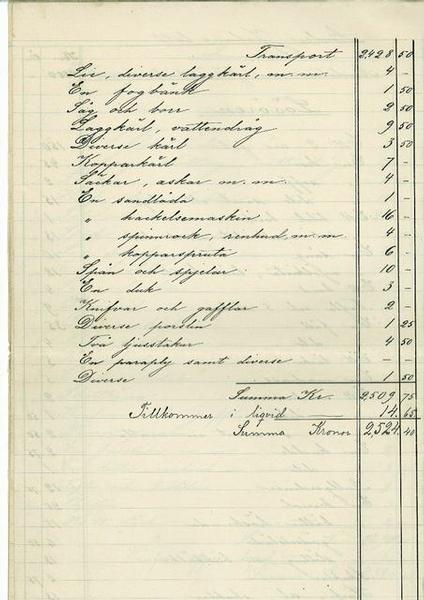 Transport 2428 50
Lie, diverse laggkärl, m.m. 4 –
En fogbänk 1 50
Såg och borr 2 50
Laggkärl, vattendrag 9 50
Diverse kärl 3 50
Kopparkärl 7 –
Säckar, askar m.m. 4 –
En sandlåda 1 –
" hackelsemaskin 16 –
" spinnrock, m.m. 4 –
" kopparspruta 6 –
Spån och spjelar 10 –
En duk 3 –
Knifvar och gafflar 2 –
Diverse porslin 1 25
Två ljusstakar 4 50
En paraply samt diverse – –
Diverse 1 50
Summa Kr. 2509 75
Tillkommer i liqvid 14 65
Summa Kronor 2,524 40